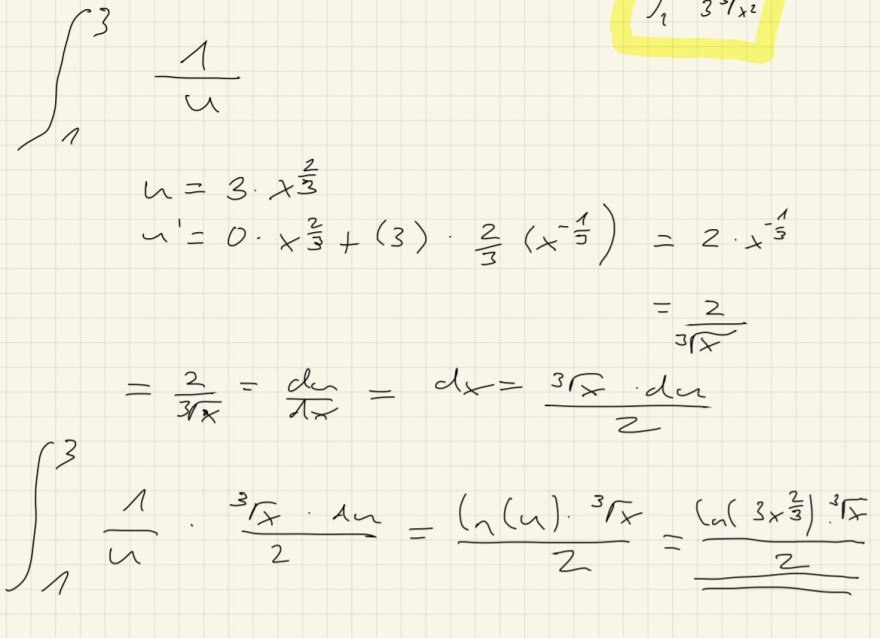 ∫₁ 3 ³√x²
∫₁³ 1/u
u = 3 · x^(2/3)
u' = 0 · x^(2/3) + (3) · 2/3 (x^(-1/3)) = 2 · x^(-1/3)
= 2/³√x
= 2/³√x = du/dx = dx = (³√x · du)/2
∫₁³ 1/u · (³√x · du)/2 = (ln(u) · ³√x)/2 = (ln(3x^(2/3)) · ³√x)/2